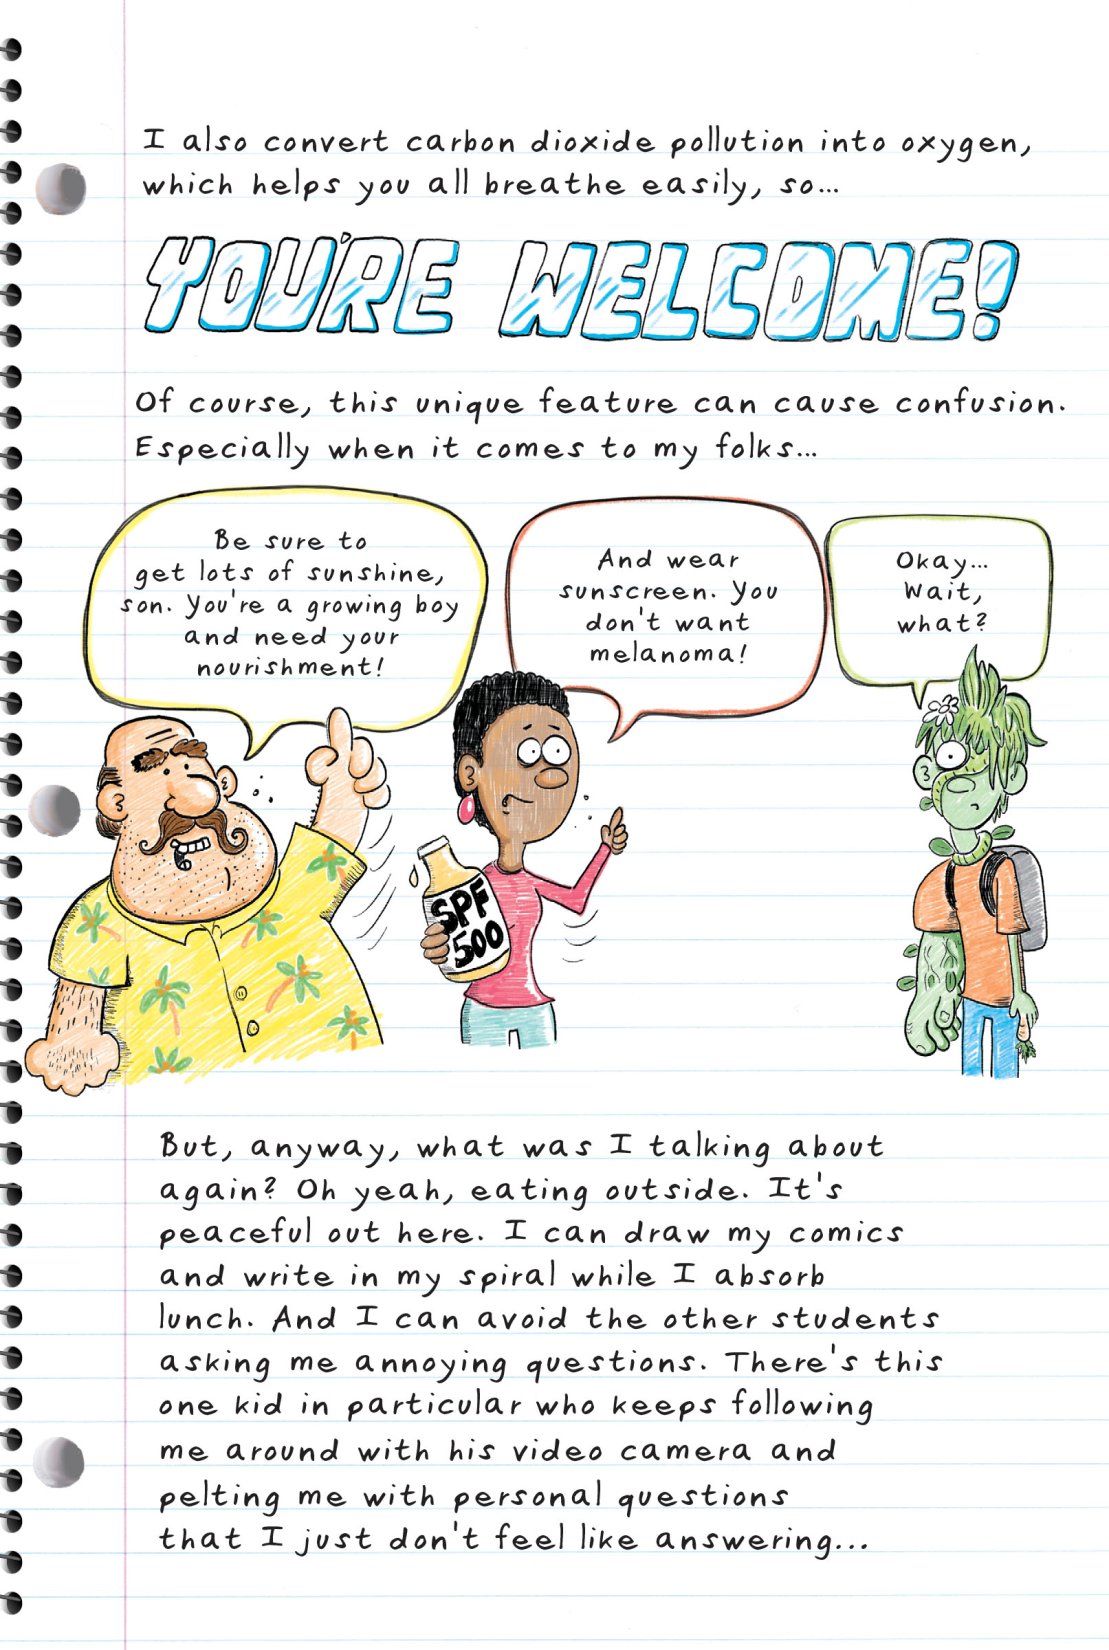 I also convert carbon dioxide pollution into oxygen,
which helps you all breathe easily, so...
YOU'RE WELCOME!
Of course, this unique feature can cause confusion.
Especially when it comes to my folks...
Be sure to
get lots of sunshine,
son. You're a growing boy
and need your
nourishment!
And wear
sunscreen. You
don't want
melanoma!
Okay...
Wait,
what?
SPF
500
But, anyway, what was I talking about
again? Oh yeah, eating outside. It's
peaceful out here. I can draw my comics
and write in my spiral while I absorb
lunch. And I can avoid the other students
asking me annoying questions. There's this
one kid in particular who keeps following
me around with his video camera and
pelting me with personal questions
that I just don't feel like answering...